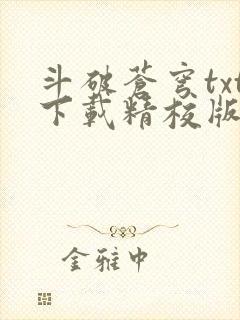 斗破蒼穹txt
下載精校版
金雅中